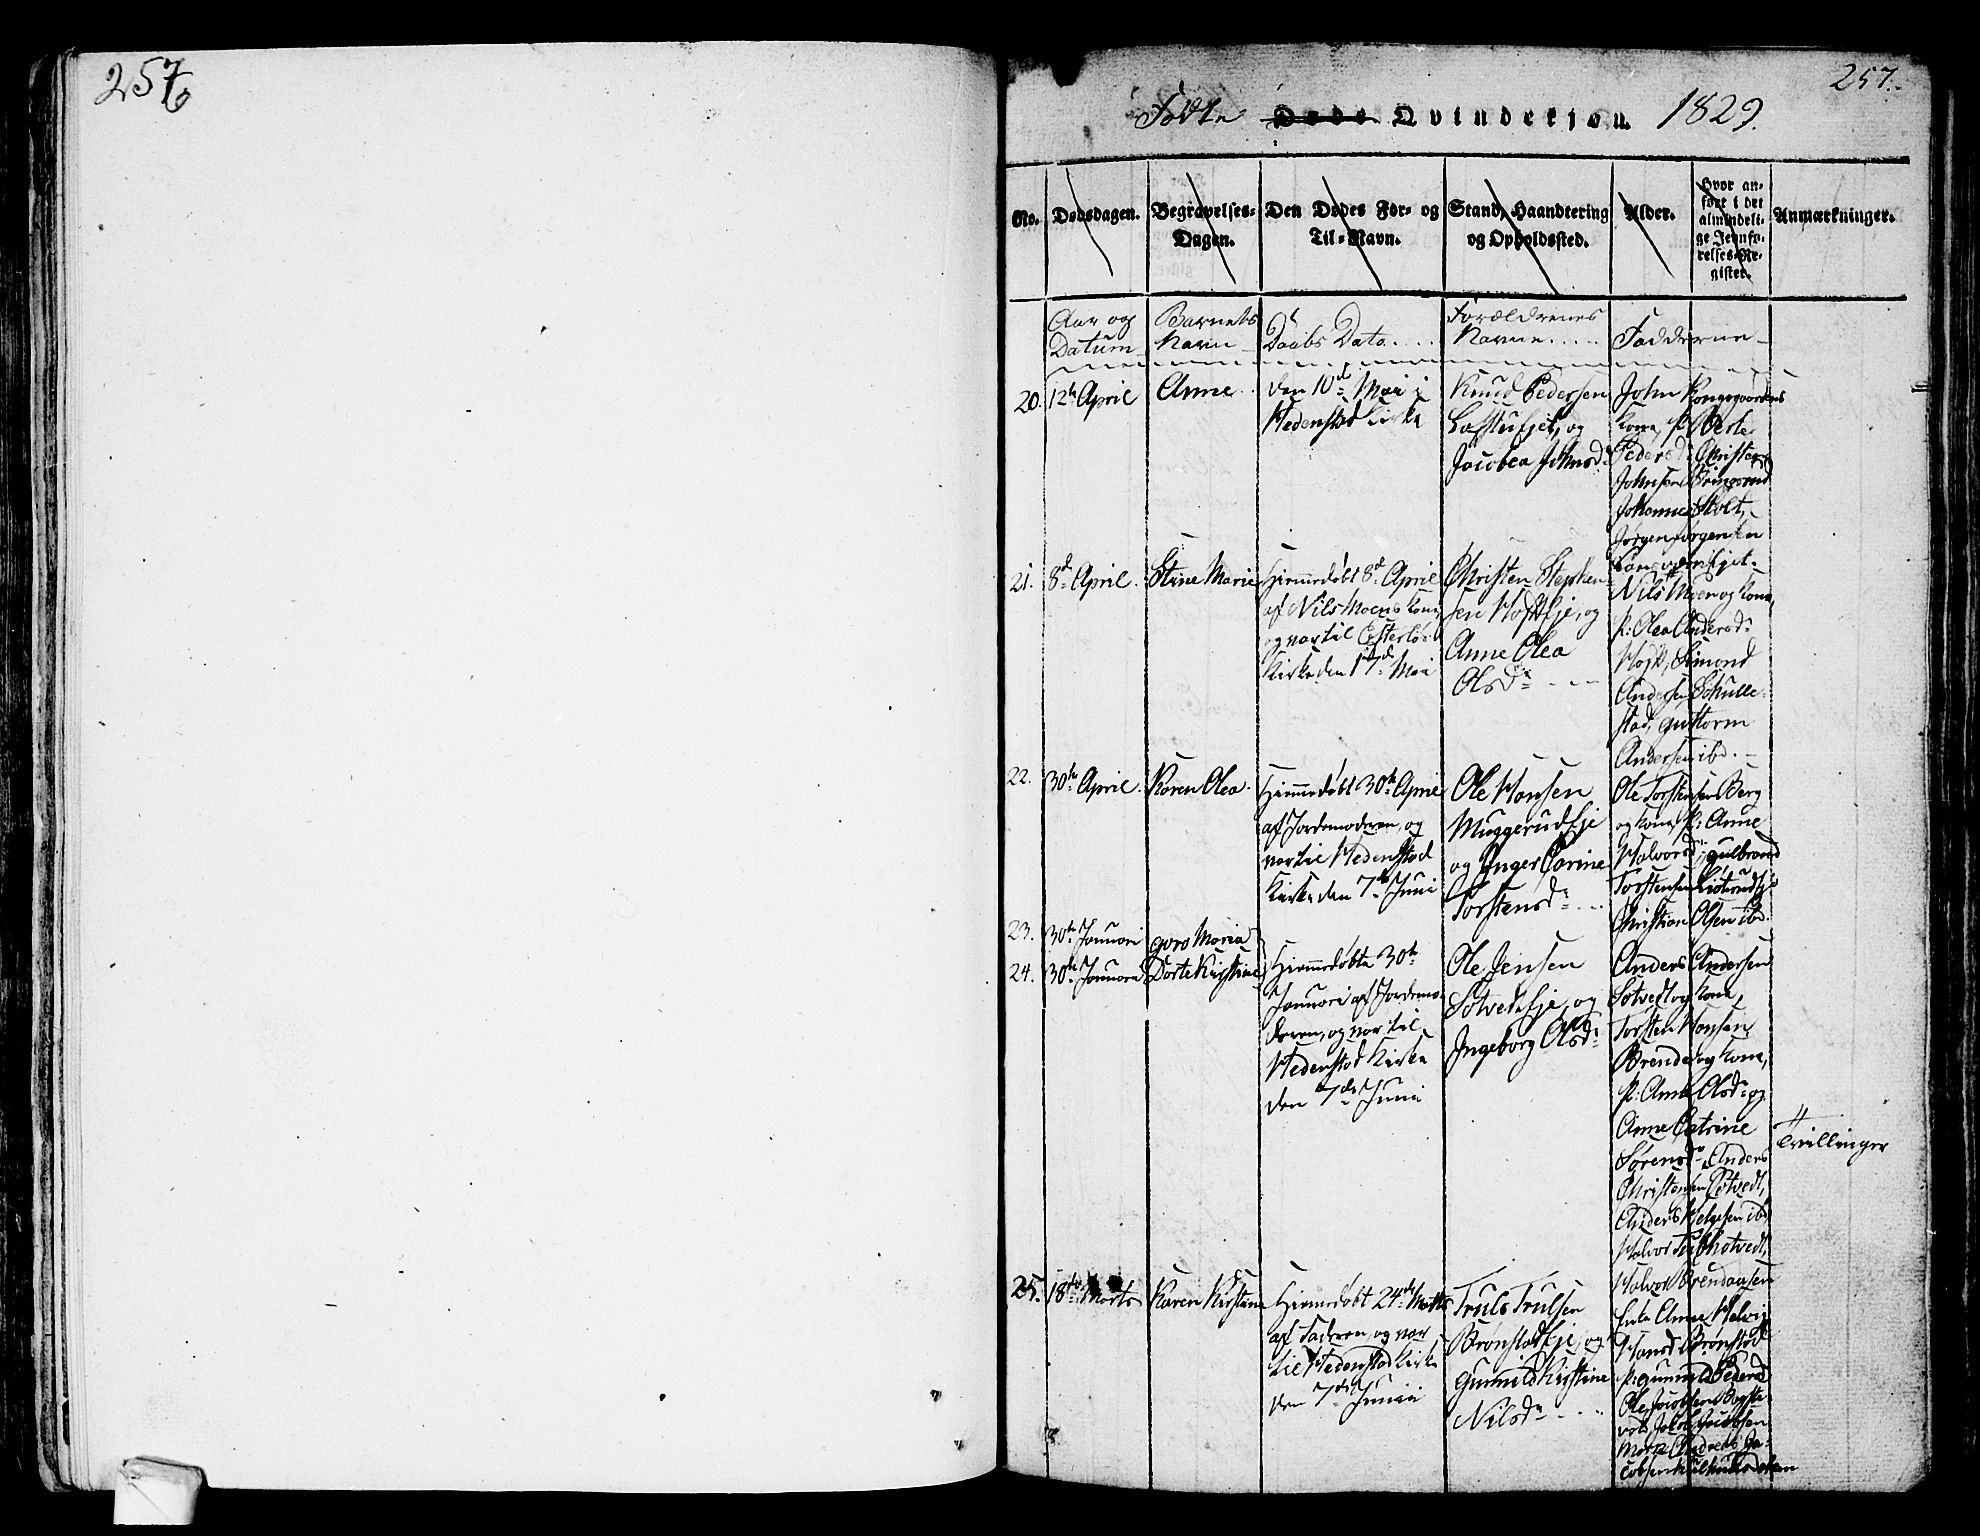 256
257.
Fødte Døde Qvindekjøn. 1829.
No.
Dødsdagen.
Begravelses-
Dagen.
Den Dødes For- og
Til-Navn.
Stand, Haandtering
og Opholdssted.
Alder.
Hvor an-
ført i det
almindeli-
ge Jevnfø-
relses-Re-
gister.
Anmærkninger.
Aar og
Datum
Barnets
Navn
Daabs Data....
Forældrenes
Navne.....
Faddrerne
20.
12te April
Anne
den 10de Mai i
Hedenstad Kirke
Knud Pedersen
og
Jacobea Johnsd.
John Kongsgaardens
Kone, p:
Pedersd. Christen
Johnsen
Johannes Stolt,
Jørgen Jørgensen
21.
8de April.
Stine Marie
Hjemmedøbt 8de April
af Nils Moens Kone
og var til Efterløt
Kirke den 17de Mai
Christen Stephen-
sen eje, og
Anne Olea
Olsd. ---
Nils Moen og Kone,
p: Olea Andersd.
Simond
Andersen Skulle-
stad, Guttorm
Andersen ibd.
22.
30te April.
Karen Olea.
Hjemmedøbt 30te April
af Jordemoderen, og
var til Hedenstad
Kirke den 7de Juni
Ole Hansen
Muggerudeje
og Inger Carine
Torstensd. ...
Ole Torstensen Berg
og Kone, p: Anne
Halvorsd., Gulbrand
Torstensen
Christian Olsen ibd.
23.
30te Januari
Goro Maria
24.
30te Januari
Dorte Kirstine
Hjemmedøbte 30te
Januari af Jordemo-
deren, og var til
Hedenstad Kirke
den 7de Juni
Ole Jensen
Sotvedteje, og
Ingeborg Olsd.
Anders Andersen
Sotvedt og Kone,
Torsten Hansen
Brende og Kone,
p: Anne Olsd. og
Anne Catrine
Sørensd. Anders
Christensen Sotvedt,
Anders Helgesen ibd,
Halvor
Tvillinger
25.
18de Marts
Karen Kirstine
Hjemmedøbt 24de Marts
af Faderen, og var
til Hedenstad Kirke
den 7de Junii
Truls Trulsen
Brønstadeje, og
Gunnild Kirstine
Nilsd. ...
Halvor Brendaasen
Enke Anne Helvig
Hansd. Brønstad
p: Gunnild Pedersd.
Ole Jacobsen
Jacob Jacobsen
Moen Andreas Ja-
cobsen